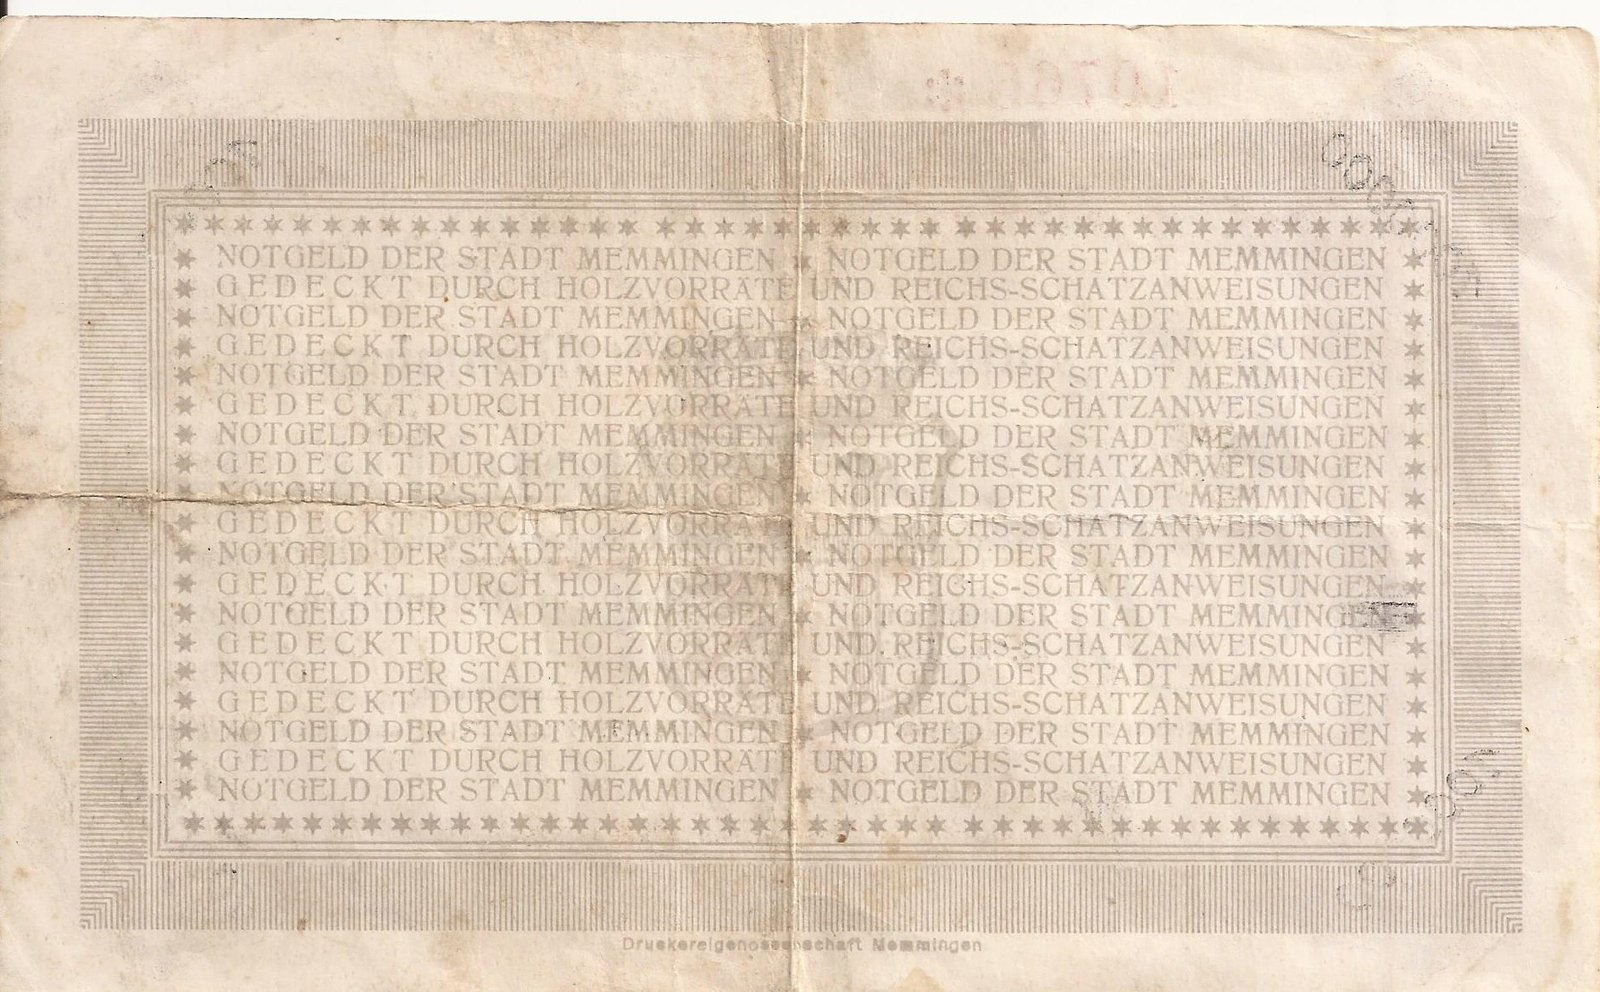 NOTGELD DER STADT MEMMINGEN * NOTGELD DER STADT MEMMINGEN
GEDECKT DURCH HOLZVORRÄTE UND REICHS-SCHATZANWEISUNGEN
NOTGELD DER STADT MEMMINGEN * NOTGELD DER STADT MEMMINGEN
GEDECKT DURCH HOLZVORRÄTE UND REICHS-SCHATZANWEISUNGEN
NOTGELD DER STADT MEMMINGEN * NOTGELD DER STADT MEMMINGEN
GEDECKT DURCH HOLZVORRÄTE UND REICHS-SCHATZANWEISUNGEN
NOTGELD DER STADT MEMMINGEN * NOTGELD DER STADT MEMMINGEN
GEDECKT DURCH HOLZVORRÄTE UND REICHS-SCHATZANWEISUNGEN
NOTGELD DER STADT MEMMINGEN * NOTGELD DER STADT MEMMINGEN
GEDECKT DURCH HOLZVORRÄTE UND REICHS-SCHATZANWEISUNGEN
NOTGELD DER STADT MEMMINGEN * NOTGELD DER STADT MEMMINGEN
GEDECKT DURCH HOLZVORRÄTE UND REICHS-SCHATZANWEISUNGEN
NOTGELD DER STADT MEMMINGEN * NOTGELD DER STADT MEMMINGEN
GEDECKT DURCH HOLZVORRÄTE UND REICHS-SCHATZANWEISUNGEN
NOTGELD DER STADT MEMMINGEN * NOTGELD DER STADT MEMMINGEN
GEDECKT DURCH HOLZVORRÄTE UND REICHS-SCHATZANWEISUNGEN
NOTGELD DER STADT MEMMINGEN * NOTGELD DER STADT MEMMINGEN
GEDECKT DURCH HOLZVORRÄTE UND REICHS-SCHATZANWEISUNGEN
NOTGELD DER STADT MEMMINGEN * NOTGELD DER STADT MEMMINGEN
Druckereigenossenschaft Memmingen